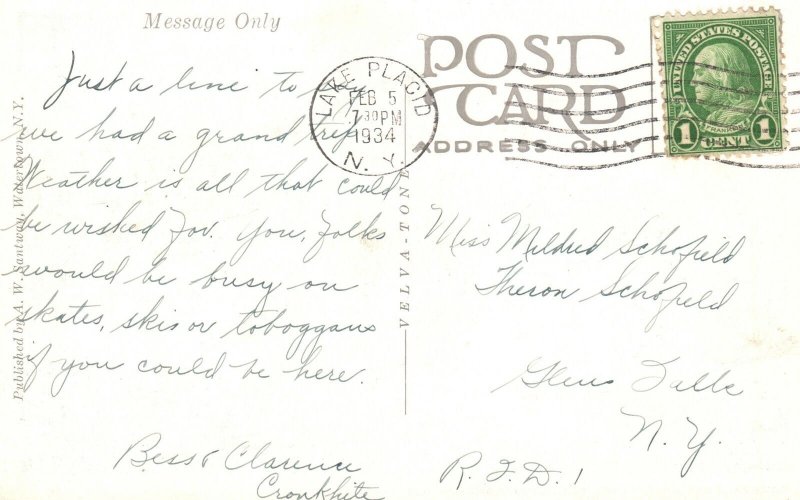 Message Only
Just a line to say
we had a grand trip.
Weather is all that could
be wished for. You folks
would be busy on
skates, skis or toboggans
if you could be here.
Bess & Clarence
Cronkhite
Published by A. W. Santway, Watertown, N.Y.
VELVA-TONE
LAKE PLACID
FEB 5
7 30 PM
1934
N. Y.
POST
CARD
ADDRESS ONLY
UNITED STATES POSTAGE
FRANKLIN
1 CENT 1
Miss Mildred Schofield
Theron Schofield
Glens Falls
N. Y.
R. F. D. 1